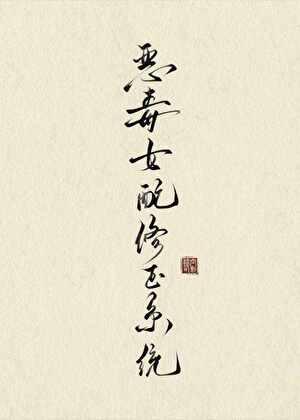 恶毒女配修正系统